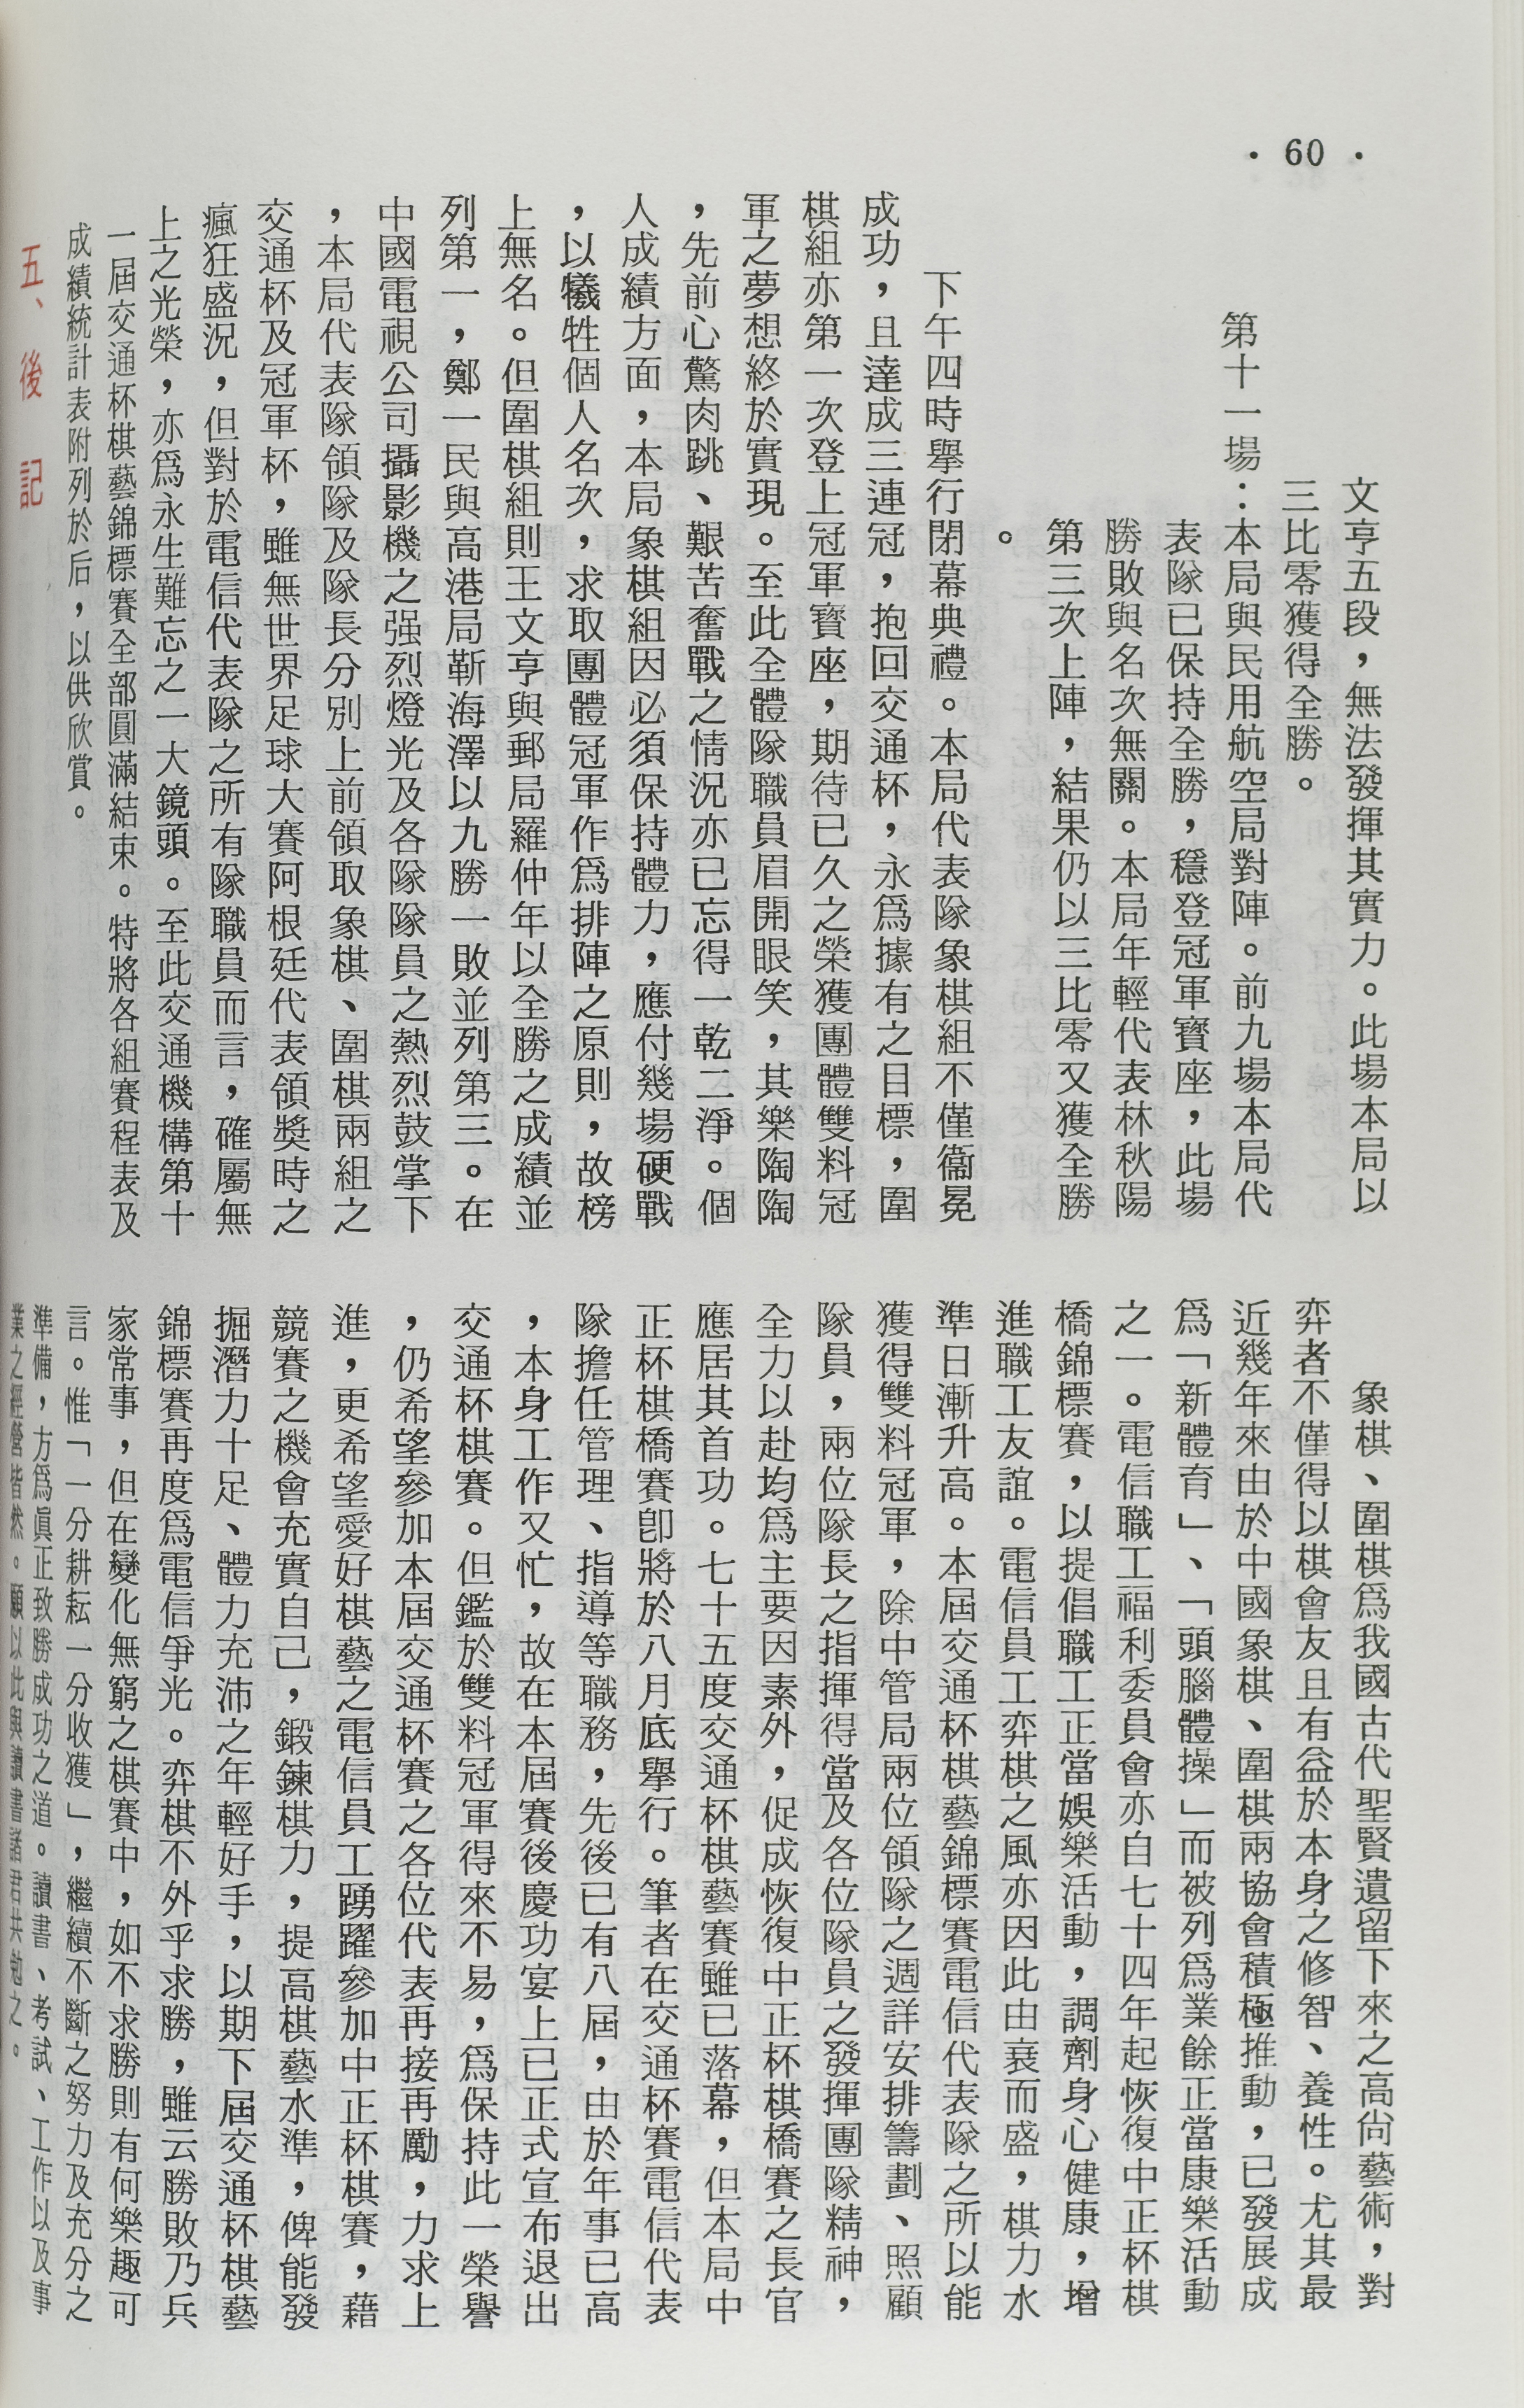 · 60 ·
文亨五段，無法發揮其實力。此場本局以
三比零獲得全勝。
第十一場：本局與民用航空局對陣。前九場本局代
表隊已保持全勝，穩登冠軍寶座，此場
勝敗與名次無關。本局年輕代表林秋陽
第三次上陣，結果仍以三比零又獲全勝
。
下午四時舉行閉幕典禮。本局代表隊象棋組不僅衞冕
成功，且達成三連冠，抱回交通杯，永爲據有之目標，圍
棋組亦第一次登上冠軍寶座，期待已久之榮獲團體雙料冠
軍之夢想終於實現。至此全體隊職員眉開眼笑，其樂陶陶
，先前心驚肉跳、艱苦奮戰之情況亦已忘得一乾二淨。個
人成績方面，本局象棋組因必須保持體力，應付幾場硬戰
，以犧牲個人名次，求取團體冠軍作爲排陣之原則，故榜
上無名。但圍棋組則王文亨與郵局羅仲年以全勝之成績並
列第一，鄭一民與高港局靳海澤以九勝一敗並列第三。在
中國電視公司攝影機之强烈燈光及各隊隊員之熱烈鼓掌下
，本局代表隊領隊及隊長分別上前領取象棋、圍棋兩組之
交通杯及冠軍杯，雖無世界足球大賽阿根廷代表領獎時之
瘋狂盛況，但對於電信代表隊之所有隊職員而言，確屬無
上之光榮，亦爲永生難忘之一大鏡頭。至此交通機構第十
一屆交通杯棋藝錦標賽全部圓滿結束。特將各組賽程表及
成績統計表附列於后，以供欣賞。
五、後記
象棋、圍棋爲我國古代聖賢遺留下來之高尙藝術，對
弈者不僅得以棋會友且有益於本身之修智、養性。尤其最
近幾年來由於中國象棋、圍棋兩協會積極推動，已發展成
爲「新體育」、「頭腦體操」而被列爲業餘正當康樂活動
之一。電信職工福利委員會亦自七十四年起恢復中正杯棋
橋錦標賽，以提倡職工正當娛樂活動，調劑身心健康，增
進職工友誼。電信員工弈棋之風亦因此由衰而盛，棋力水
準日漸升高。本屆交通杯棋藝錦標賽電信代表隊之所以能
獲得雙料冠軍，除中管局兩位領隊之週詳安排籌劃、照顧
隊員，兩位隊長之指揮得當及各位隊員之發揮團隊精神，
全力以赴均爲主要因素外，促成恢復中正杯棋橋賽之長官
應居其首功。七十五度交通杯棋藝賽雖已落幕，但本局中
正杯棋橋賽卽將於八月底舉行。筆者在交通杯賽電信代表
隊擔任管理、指導等職務，先後已有八屆，由於年事已高
，本身工作又忙，故在本屆賽後慶功宴上已正式宣布退出
交通杯棋賽。但鑑於雙料冠軍得來不易，爲保持此一榮譽
，仍希望參加本屆交通杯賽之各位代表再接再勵，力求上
進，更希望愛好棋藝之電信員工踴躍參加中正杯棋賽，藉
競賽之機會充實自己，鍛鍊棋力，提高棋藝水準，俾能發
掘潛力十足、體力充沛之年輕好手，以期下屆交通杯棋藝
錦標賽再度爲電信爭光。弈棋不外乎求勝，雖云勝敗乃兵
家常事，但在變化無窮之棋賽中，如不求勝則有何樂趣可
言。惟「一分耕耘一分收獲」，繼續不斷之努力及充分之
準備，方爲眞正致勝成功之道。讀書、考試、工作以及事
業之經營皆然。願以此與讀書諸君共勉之。